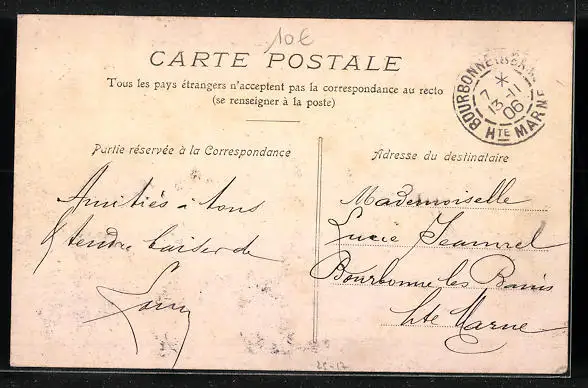 10€
CARTE POSTALE
Tous les pays étrangers n'acceptent pas la correspondance au recto
(se renseigner à la poste)
BOURBONNE-LES-BAINS
*
7
13-11
06
HTE MARNE
Partie réservée à la Correspondance
Amitiés à tous
& tendre baiser de
Adresse du destinataire
Mademoiselle
Lucie
Bourbonne les Bains
Hte Marne